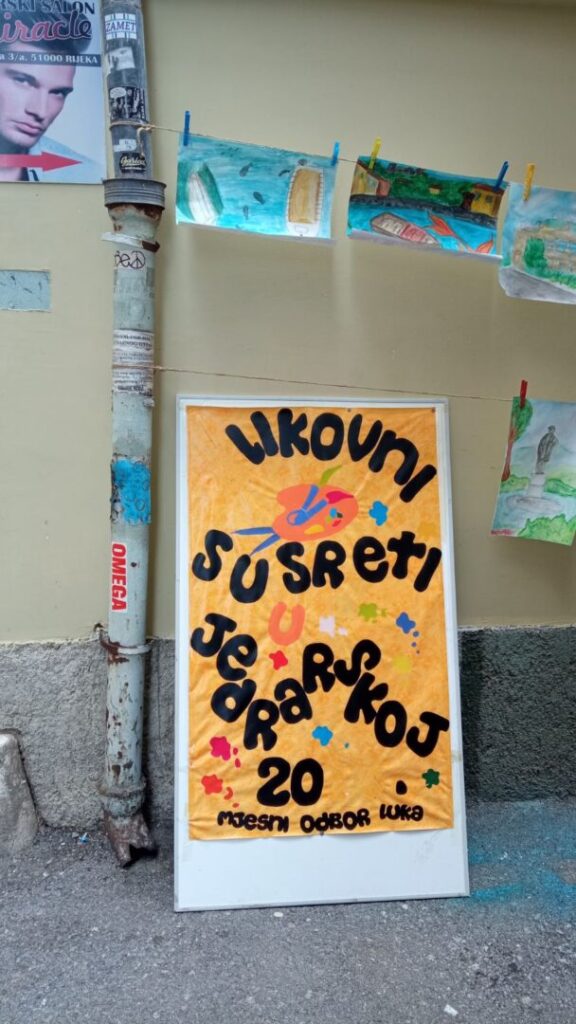 RSKI SALON
iracle
a 3/a. 51000 RIJEKA
ZAMET
OMEGA
LIKOVNI
SUSRETI
U
JEDRARSKOJ
20 .
MJESNI ODBOR LUKA